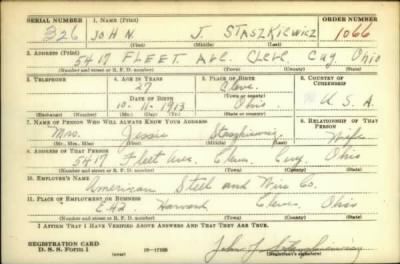 SERIAL NUMBER 1. NAME (Print) ORDER NUMBER
326 JOHN J. STASZKIEWICZ 1066
(First) (Middle) (Last)
2. ADDRESS (Print)
5417 FLEET AVE CLEV. CUY. OHIO
(Number and street or R. F. D. number) (Town) (County) (State)
3. TELEPHONE 4. AGE IN YEARS 5. PLACE OF BIRTH 6. COUNTRY OF CITIZENSHIP
27 Cleve.
DATE OF BIRTH (Town or county)
10-11-1913 Ohio. U S. A.
(Exchange) (Number) (Mo.) (Day) (Yr.) (State or country)
7. NAME OF PERSON WHO WILL ALWAYS KNOW YOUR ADDRESS 8. RELATIONSHIP OF THAT PERSON
Mrs. Jessie Staszkiewicz Wife
(Mr., Mrs., Miss) (First) (Middle) (Last)
9. ADDRESS OF THAT PERSON
5417 Fleet Ave. Clev. Cuy. Ohio
(Number and street or R. F. D. number) (Town) (County) (State)
10. EMPLOYER'S NAME
American Steel and Wire Co.
11. PLACE OF EMPLOYMENT OR BUSINESS
E. 42 Harvard Cleve. Ohio
(Number and street or R. F. D. number) (Town) (County) (State)
I AFFIRM THAT I HAVE VERIFIED ABOVE ANSWERS AND THAT THEY ARE TRUE.
REGISTRATION CARD
D. S. S. Form 1 John J. Staszkiewicz
(Registrant's signature)